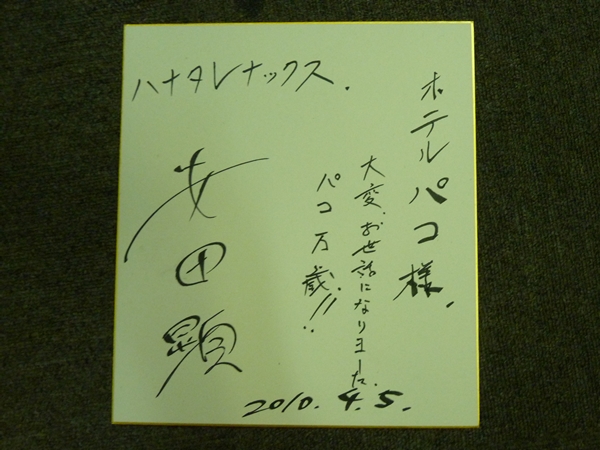 ホテルパコ様.
大変、お世話になりました。
パコ万歳!!
ハナタレナックス.
安田顕
2010.4.5.